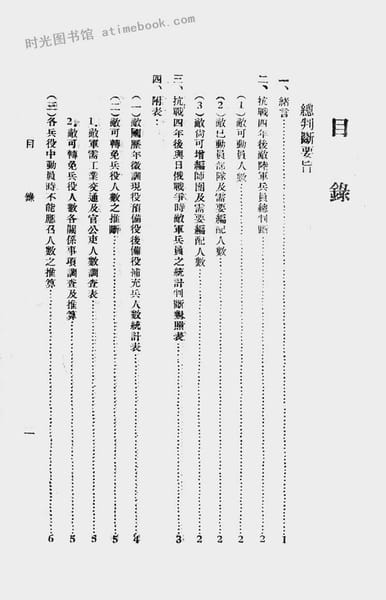 时光图书馆 · atimebook.com
目錄
總判斷要旨
一、緒言……1
二、抗戰四年後敵陸軍兵員總判斷……2
(1)敵可動員人數……2
(2)敵已動員部隊及需要編配人數……2
(3)敵尙可增編師團及需要編配人數……2
三、抗戰四年後與日俄戰爭時敵軍兵員之統計判斷對照表……3
四、附表：
(一)敵國歷年徵調現役預備役後備役補充兵人數統計表……4
(二)敵可轉免兵役人數之推斷……5
1.敵軍需工業交通及官公吏人數調查表……5
2.敵可轉免兵役人數各關係事項調查及推算……5
(三)各兵役中動員時不能應召人數之推算……6
目錄
一